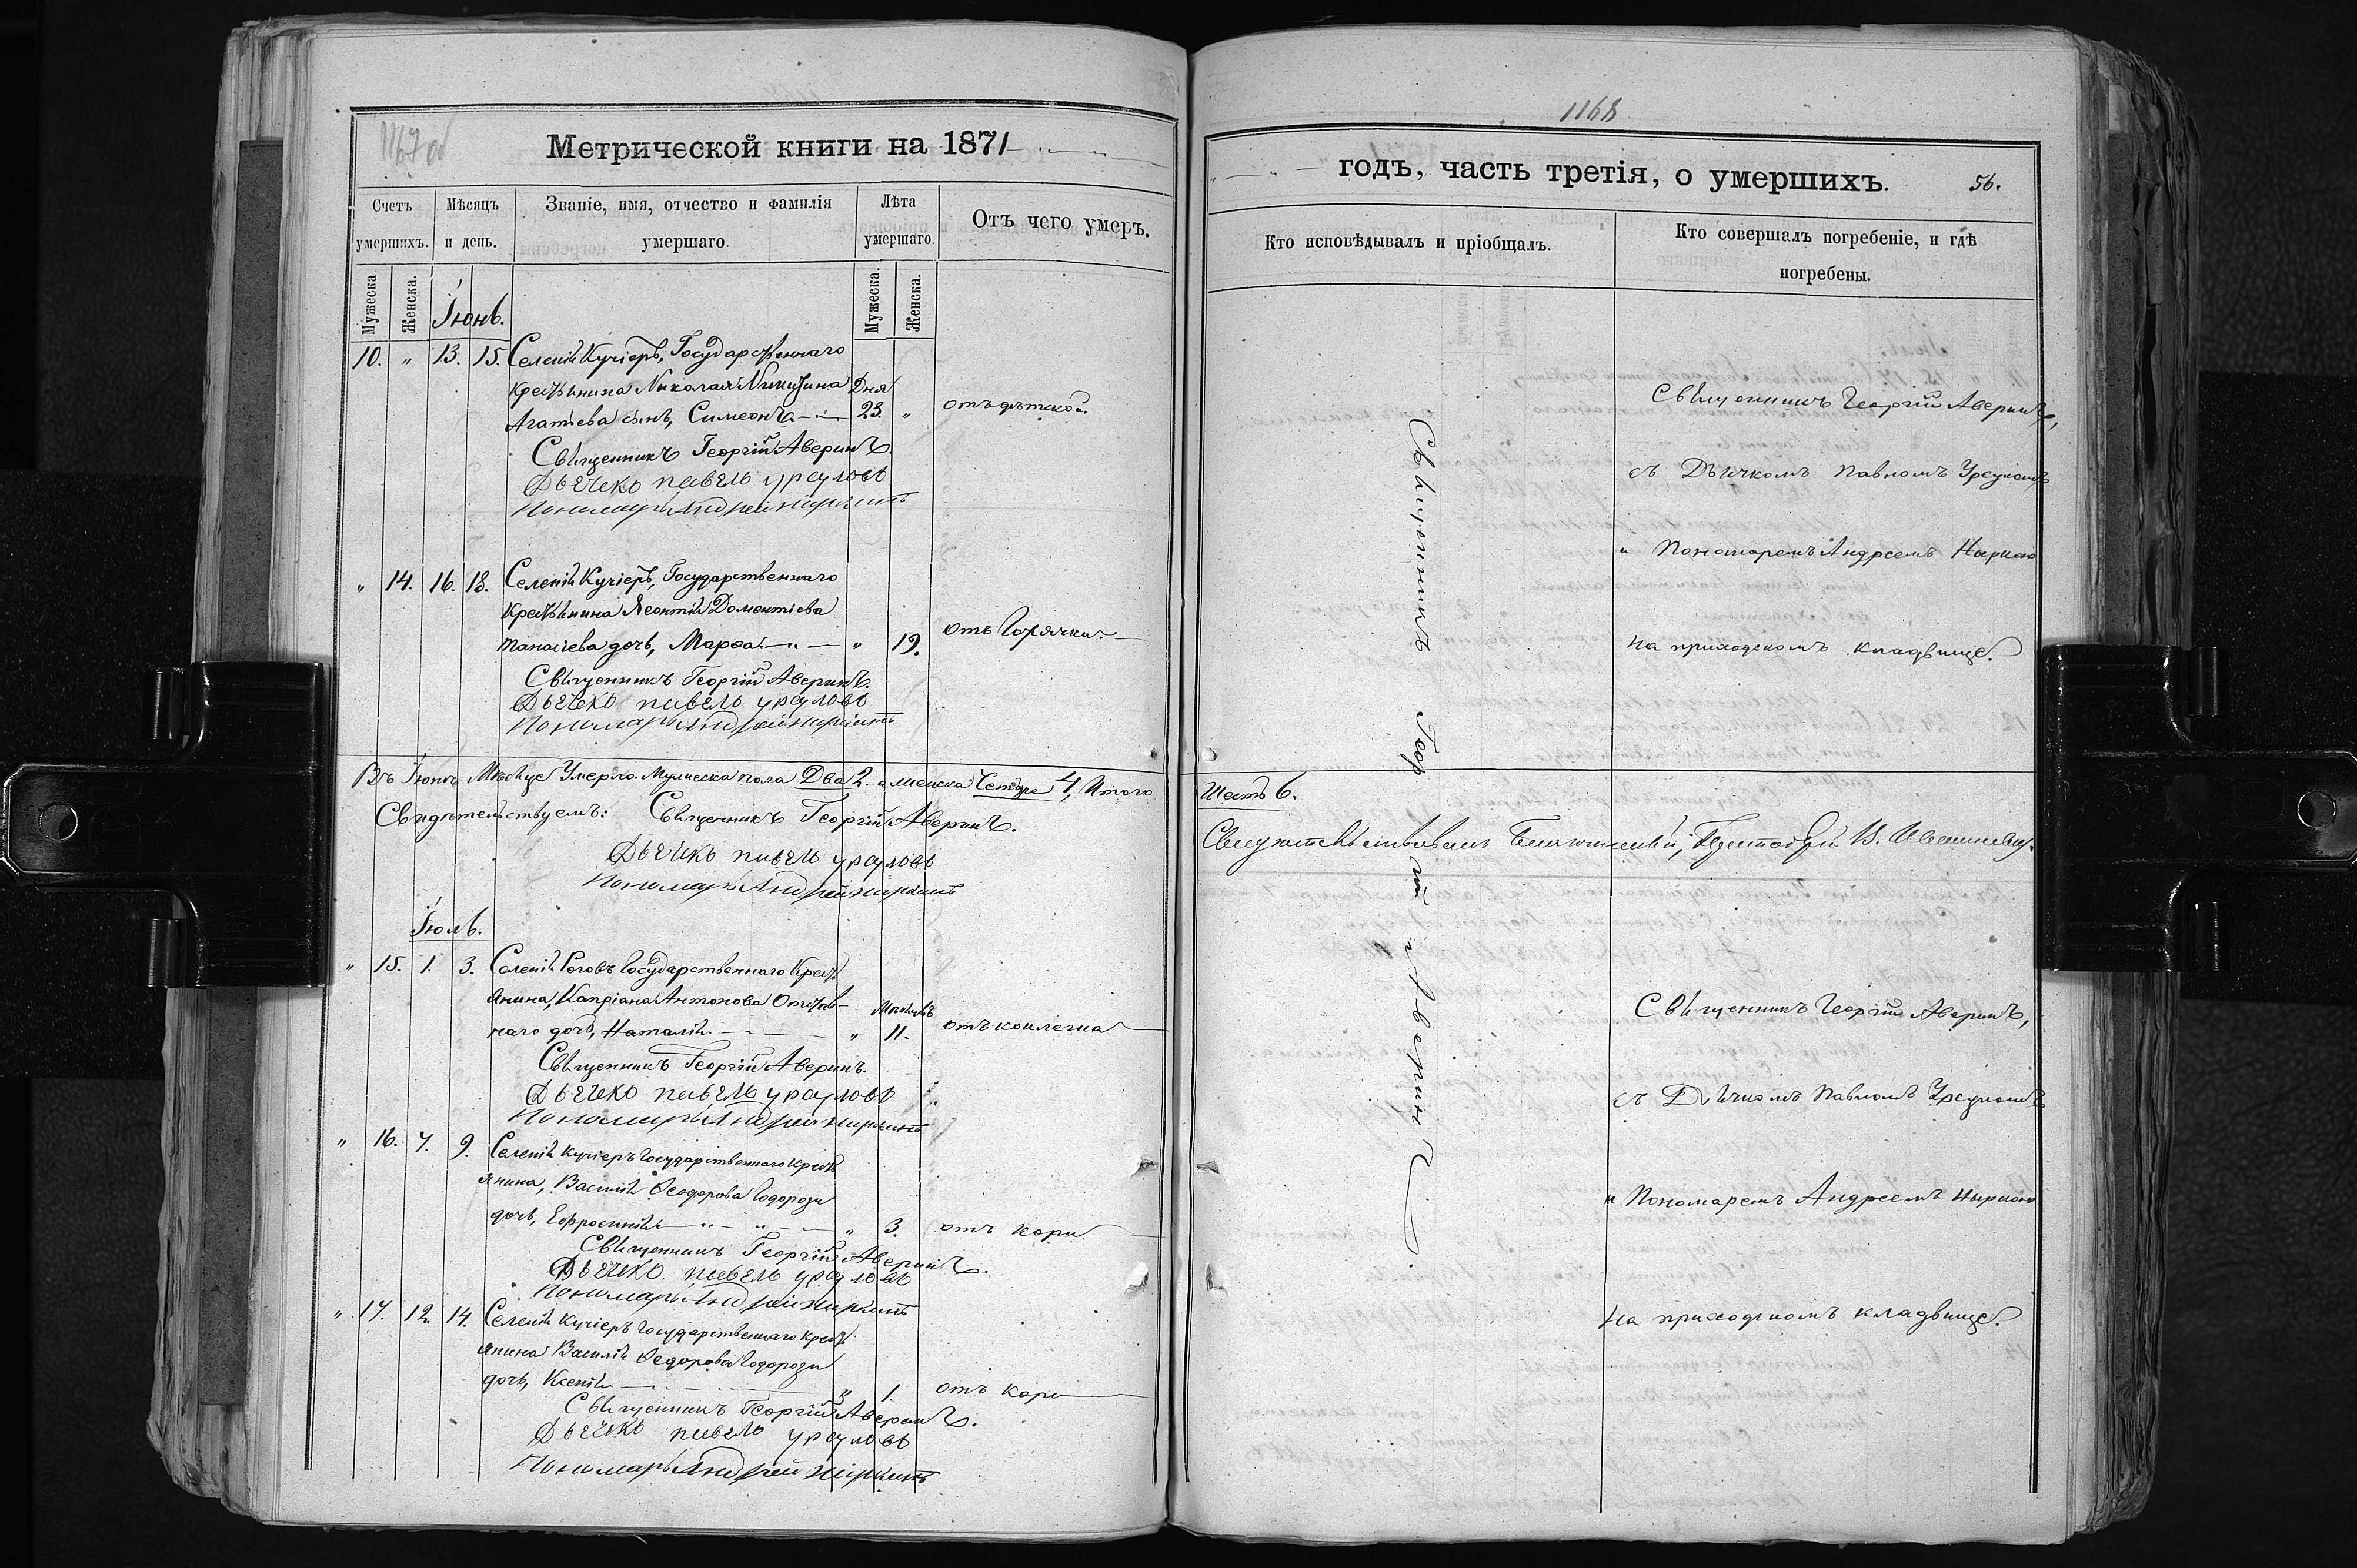 1167об
Метрической книги на 1871
Счетъ умершихъ.
Мѣсяцъ и день.
Званіе, имя, отчество и фамилія умершаго.
Лѣта умершаго.
Отъ чего умеръ.
Мужеска
Женска.
Мужеска.
Женска.
Іюнь.
10. " 13. 15. Селенія Кучіеръ, Государственнаго
крестьянина Николая Никитина Дня
Агатіева сынъ, Симеонъ 23. " отъ дѣтской
Священникъ Георгій Аверинъ.
Дьячекъ Павелъ Урсуловъ
Пономарь Андрей
" 14. 16. 18. Селенія Кучіеръ, Государственнаго
крестьянина Леонтія Доментіева
дочь, Марѳа " 19. отъ Горячки
Священникъ Георгій Аверинъ.
Дьячекъ Павелъ Урсуловъ
Пономарь Андрей
Въ Іюнѣ Мѣсяце Умерло Мужеска пола Два 2. а женска Четыре 4, Итого
Свидѣтельствуемъ: Священникъ Георгій Аверинъ.
Дьячекъ Павелъ Урсуловъ
Пономарь Андрей
Іюль.
" 15. 1. 3. Селенія Роговъ Государственнаго Крест
янина, Капріана Антонова Отстав-
наго дочь, Наталія " Мѣсяцевъ 11. отъ коклюша
Священникъ Георгій Аверинъ.
Дьячекъ Павелъ Урсуловъ
Пономарь Андрей
" 16. 7. 9. Селенія Кучіеръ Государственнаго крест
янина, Василія Ѳеодорова Тодорози
дочь, Ефросинія " 3. отъ кори
Священникъ Георгій Аверинъ.
Дьячекъ Павелъ Урсуловъ
Пономарь Андрей
" 17. 12. 14. Селенія Кучіеръ Государственнаго крест
янина Василія Ѳедорова Тодорози
дочь, Ксенія " 1. отъ кори
Священникъ Георгій Аверинъ.
Дьячекъ Павелъ Урсуловъ
Пономарь Андрей
1168
годъ, часть третія, о умершихъ. 56.
Кто исповѣдывалъ и пріобщалъ.
Кто совершалъ погребеніе, и гдѣ
погребены.
Священникъ Георгій Аверинъ
Священникъ Георгій Аверинъ,
съ Дьячкомъ Павломъ Урсуломъ
и Пономаремъ Андреемъ
на приходскомъ кладвище.
Шесть 6.
Священникъ Георгій Аверинъ,
съ Дьячкомъ Павломъ Урсуломъ
и Пономаремъ Андреемъ
на приходскомъ кладвище.